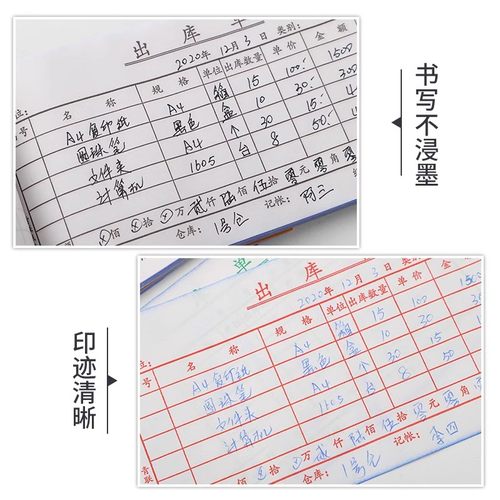 出库单
2020年12月3日 类别:
位:
号 名称 规格 单位 出库数量 单价 金额
A4复印纸 A4 箱 15 100:- 1500
圆珠笔 黑色 盒 10 30:- 300
文件夹 A4 个 30 15:-
计算机 1605 台 8 50:-
佰 拾 万 贰 仟 陆 佰 伍 拾 零 元 零 角
仓库: 1号仓 记帐: 阿三
书写不浸墨
单
出库
2020年12月3日 类别:
位:
号 名称 规格 单位 出库数量 单价 金额
A4复印纸 A4 箱 15 100
圆珠笔 黑色 盒 10 30
文件夹 A4 个 30 15
计算机 1605 台 8 50
佰 拾 万 贰 仟 陆 佰 伍 拾 零 元 零 角
青联 仓库: 1号仓 记帐: 李四
印迹清晰